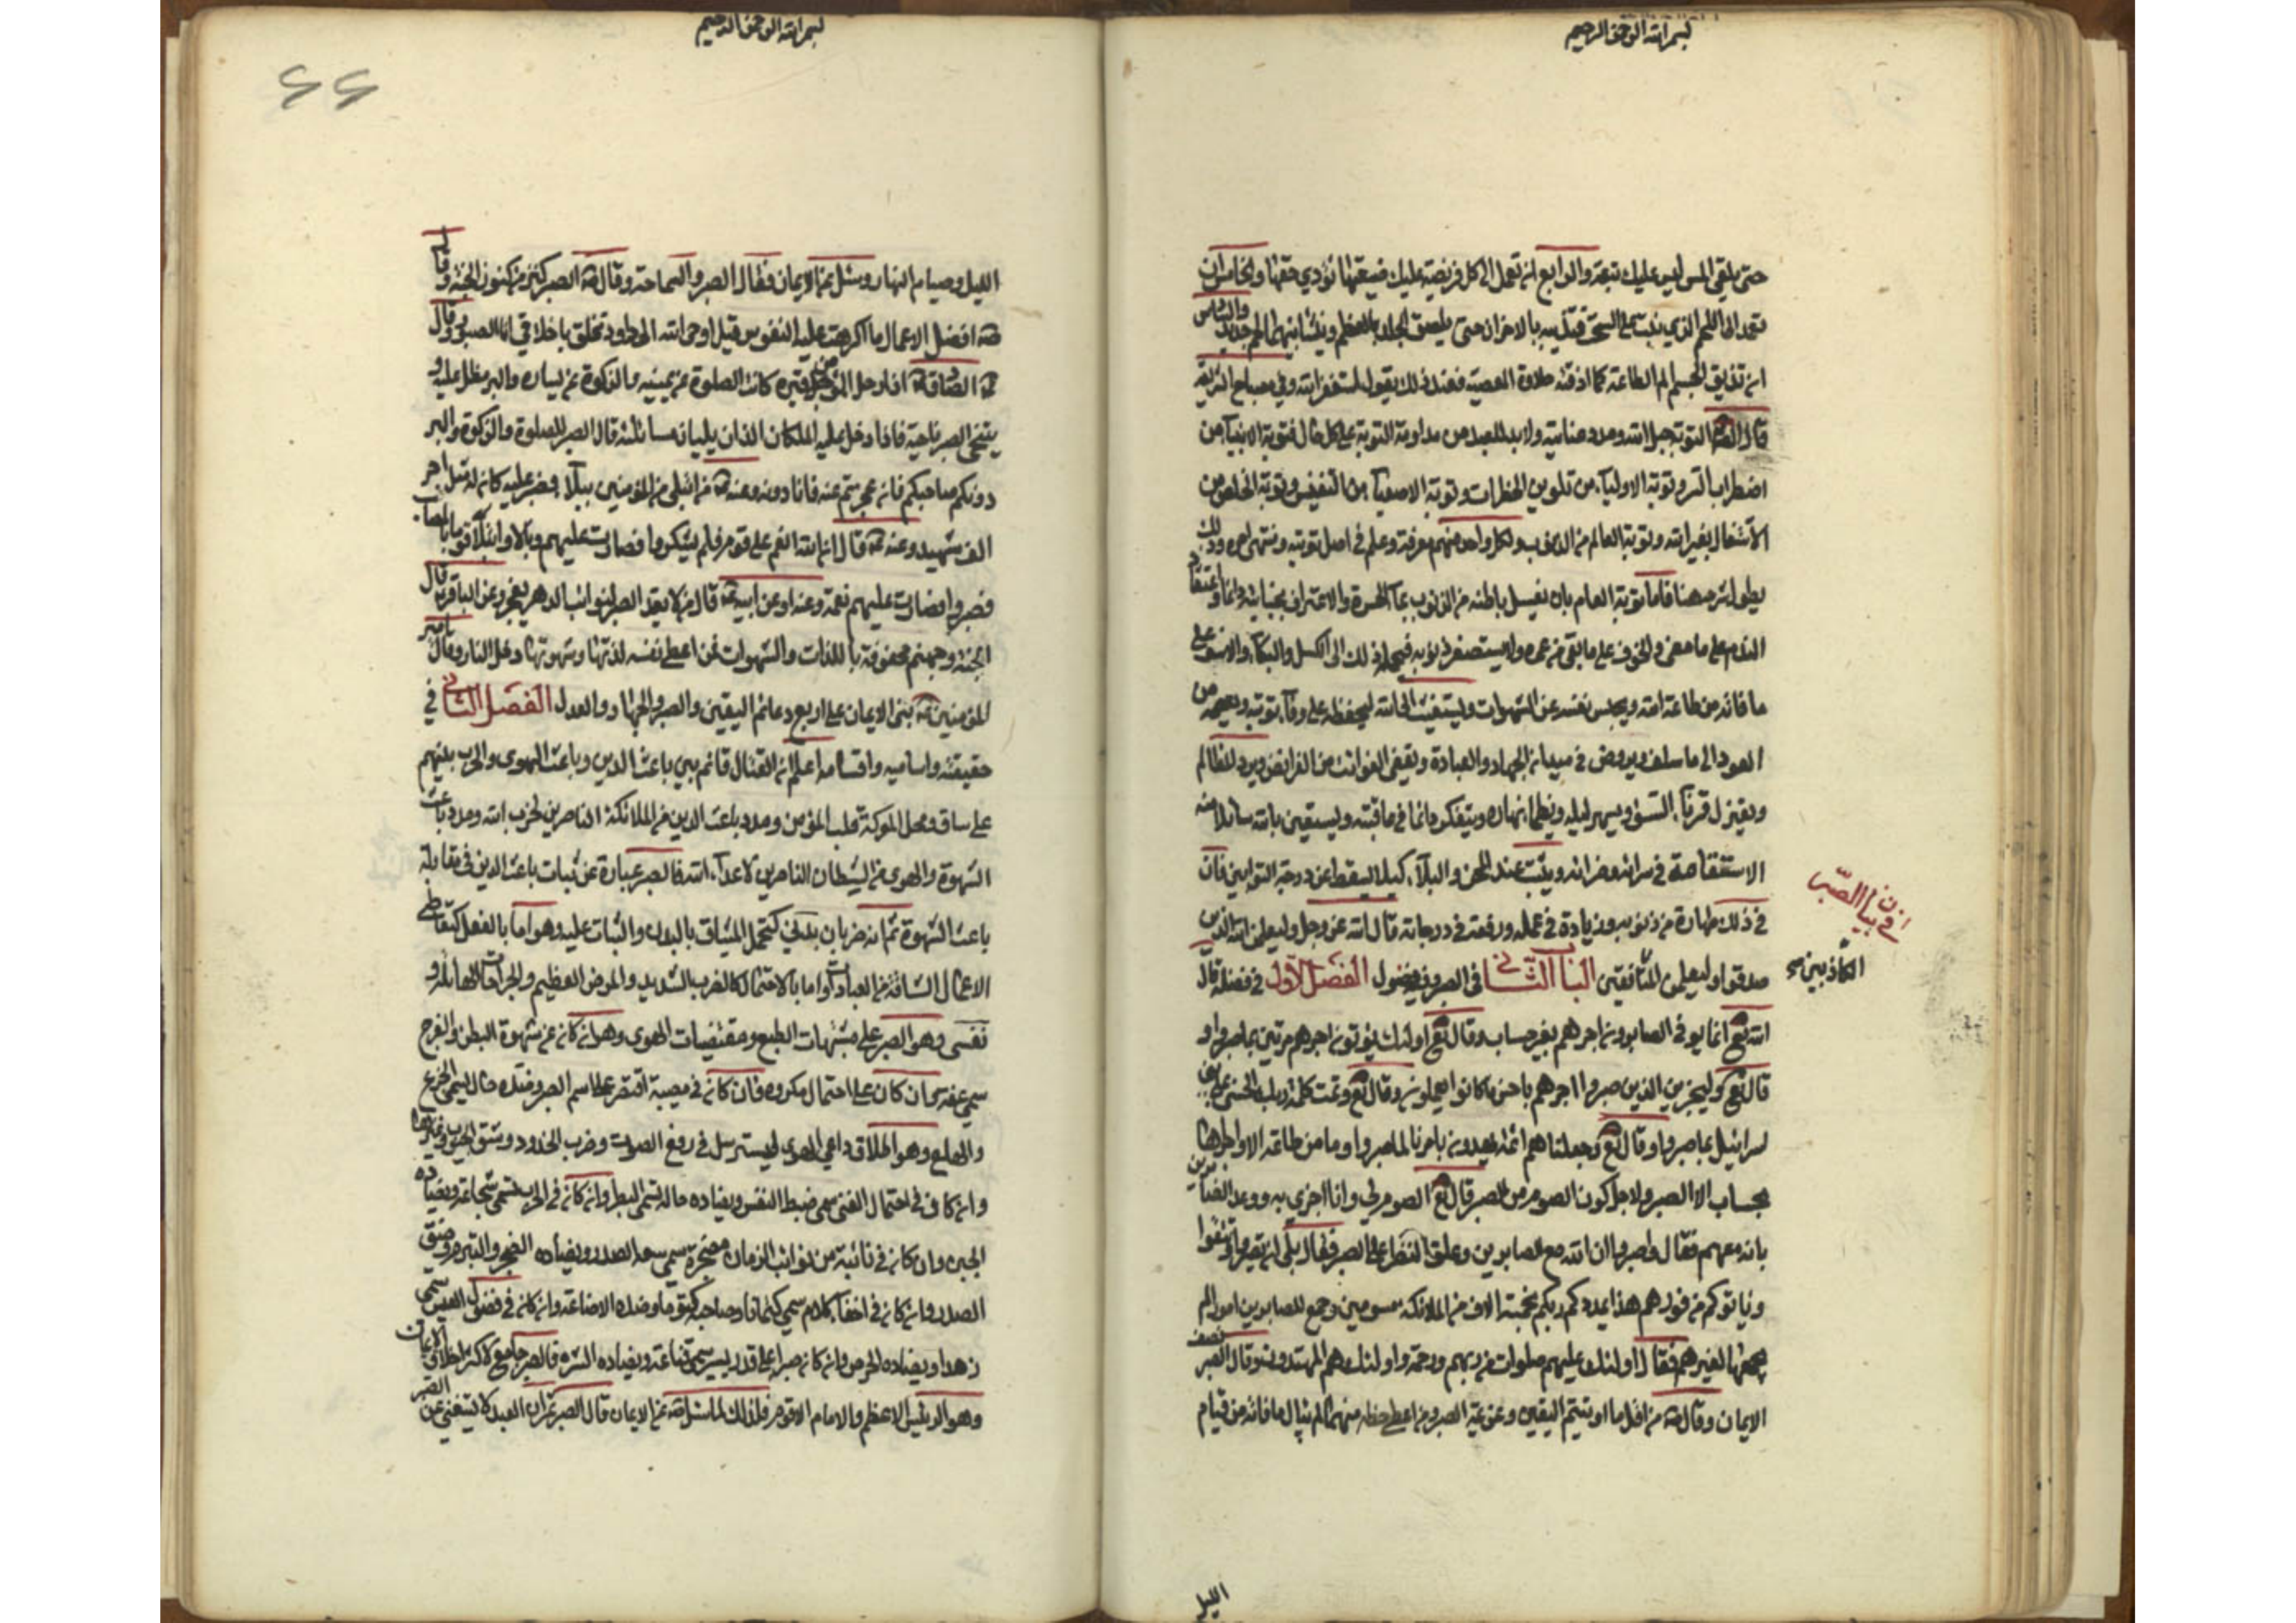 بسم الله الرحمن الرحيم
حتى يلقى الله ليس عليك تبعة والرابع ان تعمل الى كل فريضة عليك ضيعتها تؤدي حقها والخامس ان
تعمد الى اللحم الذي نبت على السحت فتذيبه بالاحزان حتى يلصق الجلد بالعظم وينشأ بينهما لحم جديد والسادس
ان تذيق الجسم الم الطاعة كما اذقته حلاوة المعصية فعند ذلك يقول استغفر الله وفي مصباح الشريعة
قال التوبة حبل الله ومدد عنايته ولا بد للعبد من مداومة التوبة على كل حال فتوبة الانبيآء من
اضطراب السر وتوبة الاوليآء من تلوين الخطرات وتوبة الاصفيآء من التنفيس وتوبة الخاص من
الاشتغال بغير الله وتوبة العام من الذنوب ولكل واحد منهم معرفة وعلم في اصل توبته ومنتهى امره وذلك
يطول شرحه هنا فاما توبة العام بان يغسل باطنه من الذنوب بمآء الحسرة والاعتراف بجنايته دائما واعتقاد
الندم على ما مضى والخوف على ما بقي من عمره ولا يستصغر ذنوبه فيحمله ذلك الى الكسل والبكآء والاسف على
ما فاته من طاعة الله ويحبس نفسه عن الشهوات ويستغيث الى الله ليحفظه على وفآء توبته ويعصمه من
العود الى ما سلف ويروض في ميدان الجهاد والعبادة ويقضي الفوائت من الفرائض ويرد المظالم
ويعتزل قرنآء السوء ويسهر ليله ويظمأ نهاره ويتفكر دائما في عاقبته ويستعين بالله سائلا منه
الاستقامة في سرائه وضرائه ويثبت عند المحن والبلآء كيلا يسقط عن درجة التوابين فان
في ذلك طهارة من ذنوبه وزيادة في عمله ورفعة في درجاته قال الله عز وجل وليعلمن الله الذين
صدقوا وليعلمن المنافقين الباب الثاني في الصبر وفيه فصول الفصل الاول في فضله قال
الكاذبين
في بيان الصبر
الله تع انما يوفى الصابرون اجرهم بغير حساب وقال تع اولئك يؤتون اجرهم مرتين بما صبروا و
قال تع وليجزين الذين صبروا اجرهم باحسن ما كانوا يعملون وقال تع وتمت كلمة ربك الحسنى على بني
اسرائيل بما صبروا وقال تع وجعلنا هم ائمة يهدون بامرنا لما صبروا وما من طاعة الا واجرها
بحساب الا الصبر ولاجل كون الصوم من الصبر قال تع الصوم لي وانا اجزي به ووعد الصابرين
بانه معهم فقال واصبروا ان الله مع الصابرين وعلق النصر على الصبر فقال بلى ان تصبروا وتتقوا
وياتوكم من فورهم هذا يمددكم ربكم بخمسة الاف من الملائكة مسومين وجمع للصابرين امورا لم
يجمعها لغيرهم فقال اولئك عليهم صلوات من ربهم ورحمة واولئك هم المهتدون وقال الصبر نصف
الايمان وقال من اقل ما اوتيتم اليقين وعزيمة الصبر ومن اعطي حظه منهما لم يبال ما فاته من قيام
الليل
بسم الله الرحمن الرحيم
٢٢
الليل وصيام النهار وسئل عن الايمان فقال الصبر والسماحة وقال الصبر كنز من كنوز الجنة وقال
افضل الاعمال ما اكرهت عليه النفوس قيل اوحى الله الى داود تخلق باخلاقي انا الصبور وقال
الصادق اذا دخل المؤمن قبره كانت الصلوة عن يمينه والزكوة عن يساره والبر مظل عليه و
يتنحى الصبر ناحية فاذا دخل عليه الملكان اللذان يليان مسائلته قال الصبر للصلوة والزكوة والبر
دونكم صاحبكم فان عجزتم عنه فانا دونه وعنه من ابتلي من المؤمنين ببلآء فصبر عليه كان له مثل اجر
الف شهيد وعنه قال ان الله انعم على قوم فلم يشكروا فصارت عليهم وبالا وابتلى قوما بالمصائب
فصبروا فصارت عليهم نعمة وعنه او عن ابيه قال من لا يعد الصبر لنوائب الدهر يعجز وعن الباقر قال
الجنة وجهنم محفوفة باللذات والشهوات فمن اعطى نفسه لذتها وشهوتها دخل النار وقال امير
المؤمنين بني الايمان على اربع دعائم اليقين والصبر والجهاد والعدل الفصل الثاني في
حقيقته واساميه واقسامه اعلم ان القتال قائم بين باعث الدين وباعث الهوى والحرب بينهم
على ساق ومحل المعركة قلب المؤمن ومدد باعث الدين من الملائكة الناصرين لحزب الله ومدد باعث
الشهوة والهوى من الشيطان الناصرين لاعدآء الله فالصبر عبارة عن ثبات باعث الدين في مقابلة
باعث الشهوة ثم انه ضربان بدني كتحمل المشاق بالبدن والثبات عليه وهو اما بالفعل كتعاطي
الاعمال الشاقة من العبادات واما بالاحتمال كالضرب الشديد والمرض العظيم والجراحات الهائلة و
نفسي وهو الصبر على مشتهيات الطبع ومقتضيات الهوى وهو ان كان عن شهوة البطن والفرج
سمي عفة وان كان على احتمال مكروه فان كان في مصيبة اقتصر على اسم الصبر وضده حال يسمى الجزع
والهلع وهو اطلاق داعي الهوى ليسترسل في رفع الصوت وضرب الخدود وشق الجيوب وغيرها
وان كان في احتمال الغنى سمي ضبط النفس ويضاده حالة تسمى البطر وان كان في الحرب تسمى شجاعة ويضاده
الجبن وان كان في نائبة من نوائب الزمان مضجرة سمي سعة الصدر ويضاده الضجر والتبرم وضيق
الصدر وان كان في اخفآء كلام سمي كتمانا وصاحبه كتوما وضده الاضاعة وان كان في فضول العيش سمي
زهدا ويضاده الحرص وان كان صبرا على قدر يسير سمي قناعة ويضاده الشره فالصبر جامع لاكثر اخلاق الايمان
وهو الرئيس الاعظم والامام الاقوم فلذلك لما سئل عن الايمان قال الصبر ثم ان العبد لا يستغني عن الصبر